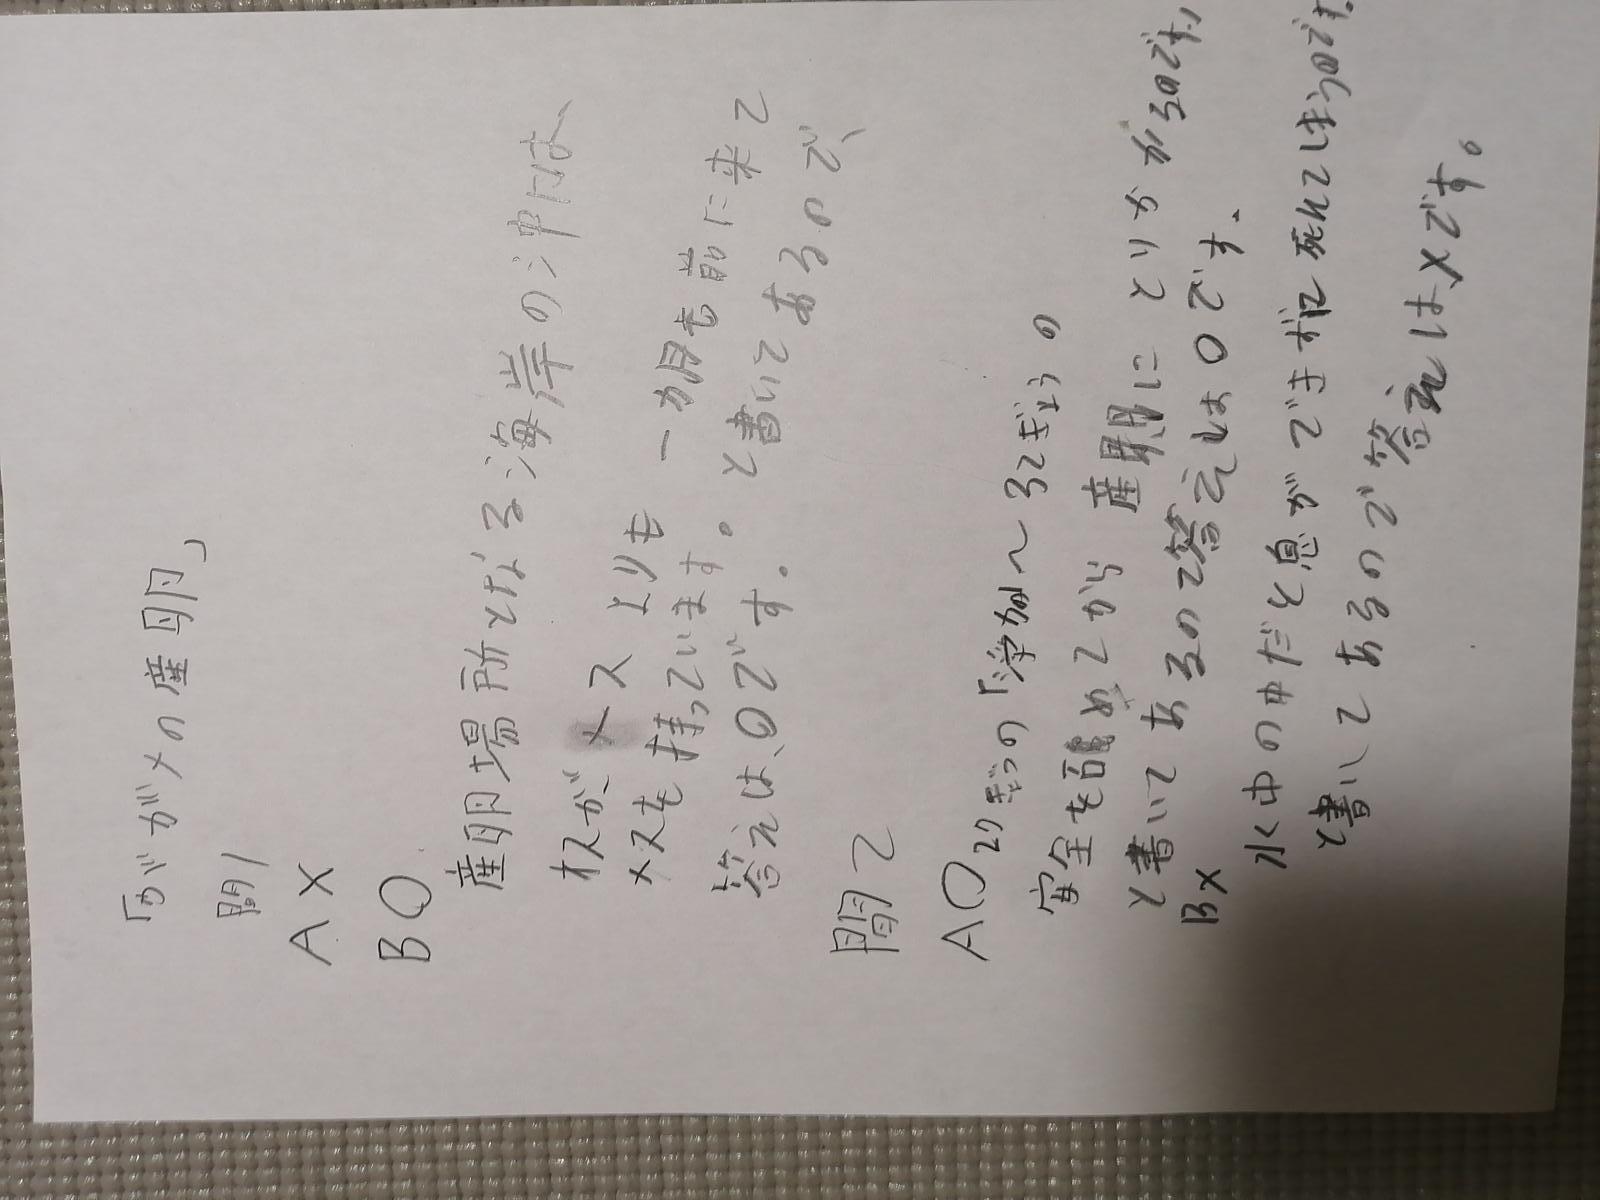 「カガメの産卵」
問1
A X
B O
産卵場所となる海岸の沖には、
オスがメスよりも一カ月も前に来て
メスを持っています。と書いてあるので、
答えは、Oです。
問2
A O 2行ぎつの「浄 〜 3行ぎょうの
安全を確めてから産卵にとりかかるのです」
と書いてあるので答えはOです.
B X
水中の中だと息ができずに死んでしまうのです。
と書いてあるので答えはXです。